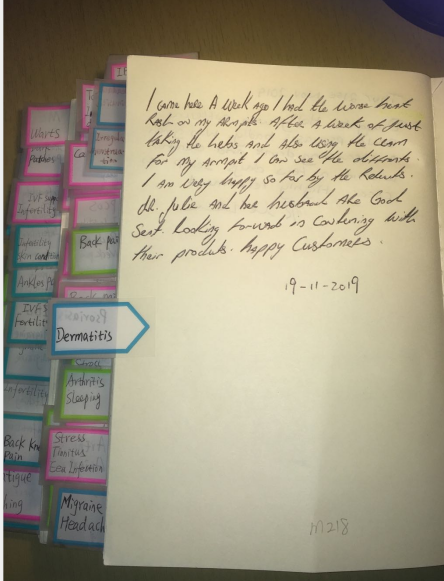 I came here A week ago I had the worse heat
Rash on my Armpits. After A week of just
taking the herbs and Also Using the cream
for my Armpit I can see the differents.
I Am very happy so far by the Results.
dr. Julie And her husband Are God
Sent. Looking forward in Contuning with
their produts. happy Customers.
19-11-2019
M218
Warts
IVF
Infertility
Infertility
Skin
Ankles
IVF
fertilit
Back pain
Dermatitis
Arthritis
Sleeping
Stress
Tinitus
Infection
Back Kn
Pain
Migraine
Headach